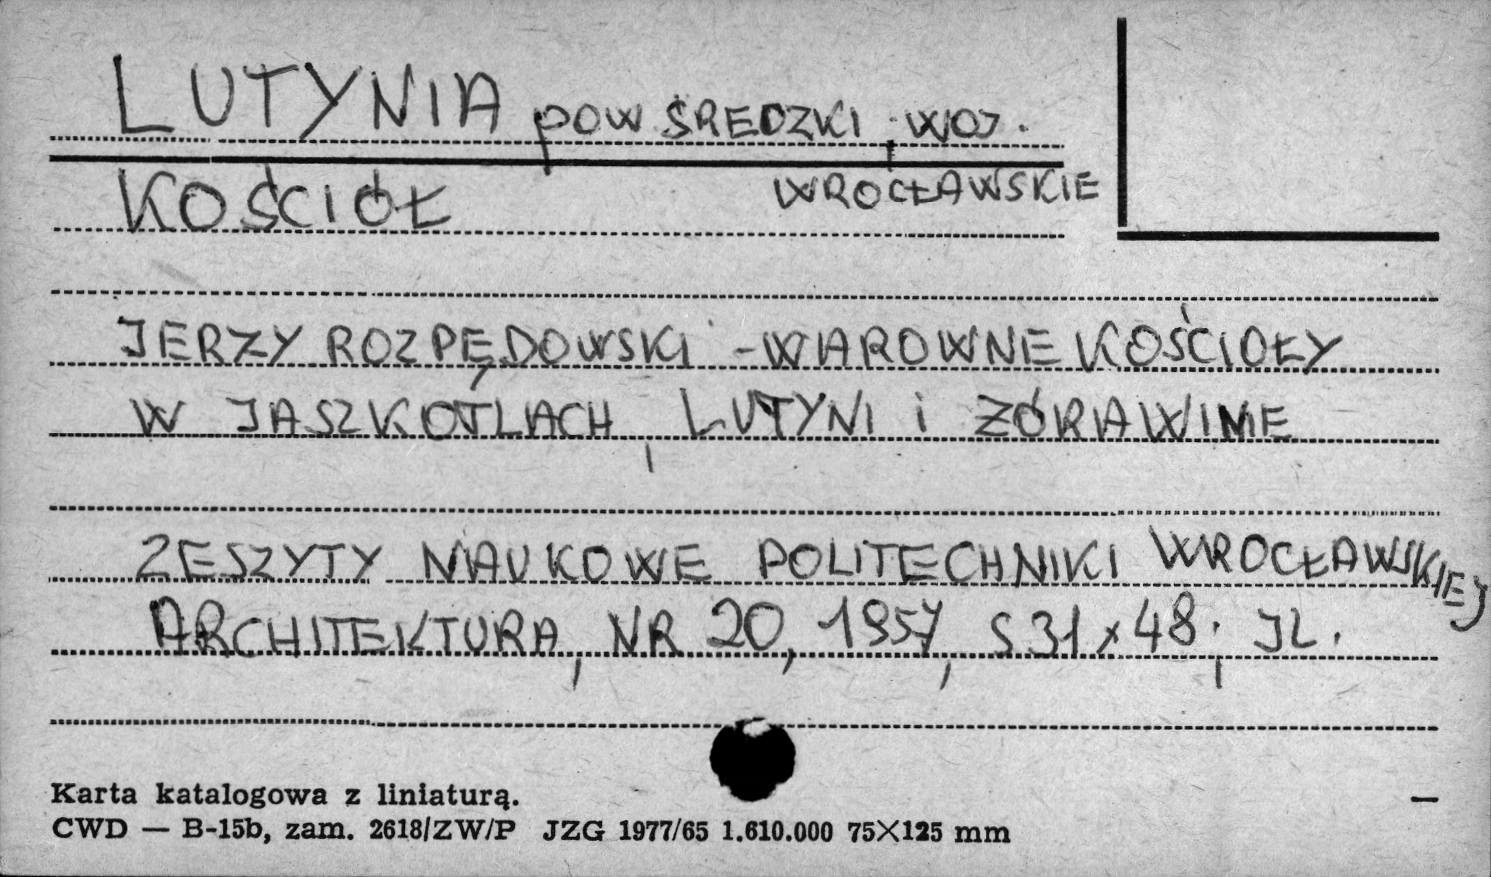 LUTYNIA pow ŚREDZKI, WOJ.
WROCŁAWSKIE
KOŚCIÓŁ
JERZY ROZPĘDOWSKI - WAROWNE KOŚCIOŁY
W JASZKOTLACH, LUTYNI i ŻÓRAWINIE
ZESZYTY NAUKOWE POLITECHNIKI WROCŁAWSKIEJ
ARCHITEKTURA, NR 20, 1957, S 31 x 48; IL.
Karta katalogowa z liniaturą.
CWD — B-15b, zam. 2618/ZW/P JZG 1977/65 1.610.000 75×125 mm